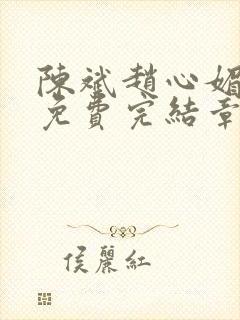 陳斌趙心媚
免費完結章
侯麗紅